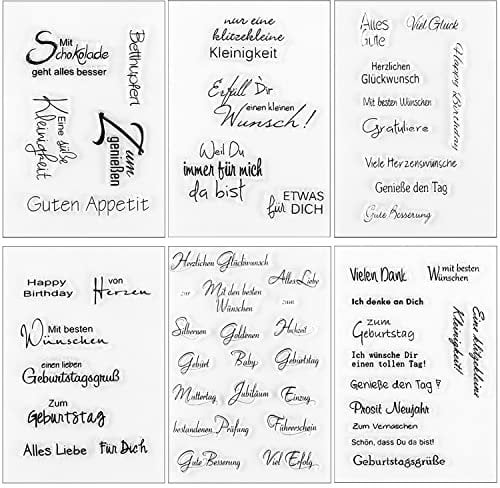 Mit
Schokolade
geht alles besser
Betthupferl
Eine süße
Kleinigkeit
Zum
genießen
Guten Appetit
nur eine
klitzekleine
Kleinigkeit
Erfüll Dir
einen kleinen
Wunsch!
Weil Du
immer für mich
da bist
ETWAS
für DICH
Alles
Gute
Viel Glück
Happy Birthday
Herzlichen
Glückwunsch
Mit besten Wünschen
Gratuliere
Viele Herzenswünsche
Genieße den Tag
Gute Besserung
Happy
Birthday
von
Herzen
Mit besten
Wünschen
einen lieben
Geburtstagsgruß
Zum
Geburtstag
Alles Liebe
Für Dich
Herzlichen Glückwunsch
Alles Liebe
zur
Mit den besten
Wünschen
zum
Silbernen
Goldenen
Hochzeit
Geburt
Baby
Geburtstag
Muttertag
Jubiläum
Einzug
bestandenen
Prüfung
Führerschein
Gute Besserung
Viel Erfolg
Vielen Dank
mit besten
Wünschen
Ich denke an Dich
zum
Geburtstag
Eine klitzekleine
Kleinigkeit!
Ich wünsche Dir
einen tollen Tag!
Genieße den Tag
Prosit Neujahr
Zum Vernaschen
Schön, dass Du da bist!
Geburtstagsgrüße